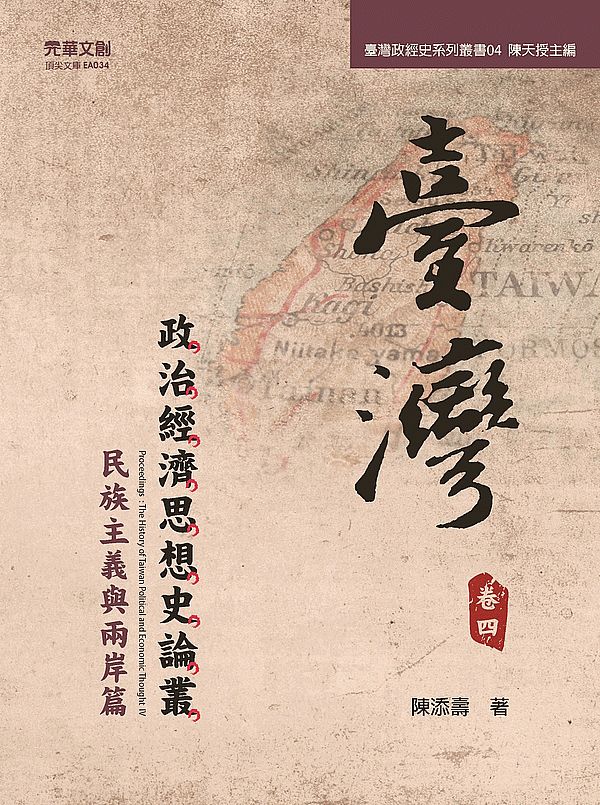 元華文創
頂尖文庫 EA034
臺灣政經史系列叢書04 陳天授主編
臺灣
政治經濟思想史論叢
Proceedings : The History of Taiwan Political and Economic Thought IV
民族主義與兩岸篇
卷四
陳添壽 著
Kagi
4013
Niitaka yama
TAIWA